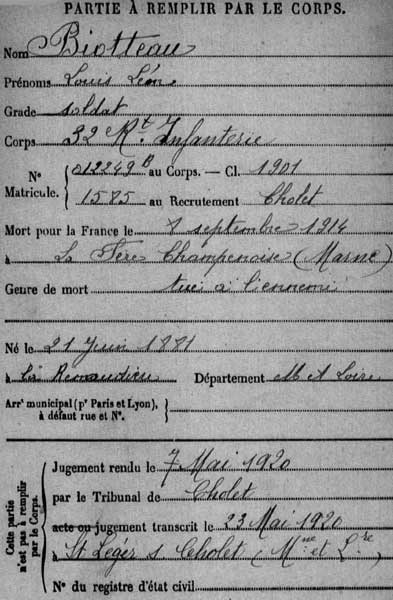 PARTIE À REMPLIR PAR LE CORPS.
Nom Biotteau
Prénoms Louis Léon
Grade soldat
Corps 32 Rt. Infanterie
N° Matricule. 012249 B au Corps. — Cl. 1901
1585 au Recrutement Cholet
Mort pour la France le 8 septembre 1914
à La Fère Champenoise (Marne)
Genre de mort tué à l'ennemi
Né le 21 Juin 1881
à la Renaudière Département M et Loire
Arrt municipal (pr Paris et Lyon), à défaut rue et N°.
Cette partie n'est pas à remplir par le Corps.
Jugement rendu le 7 Mai 1920
par le Tribunal de Cholet
acte ou jugement transcrit le 23 Mai 1920
à St Léger s Cholet (Mne et Lre)
N° du registre d'état civil